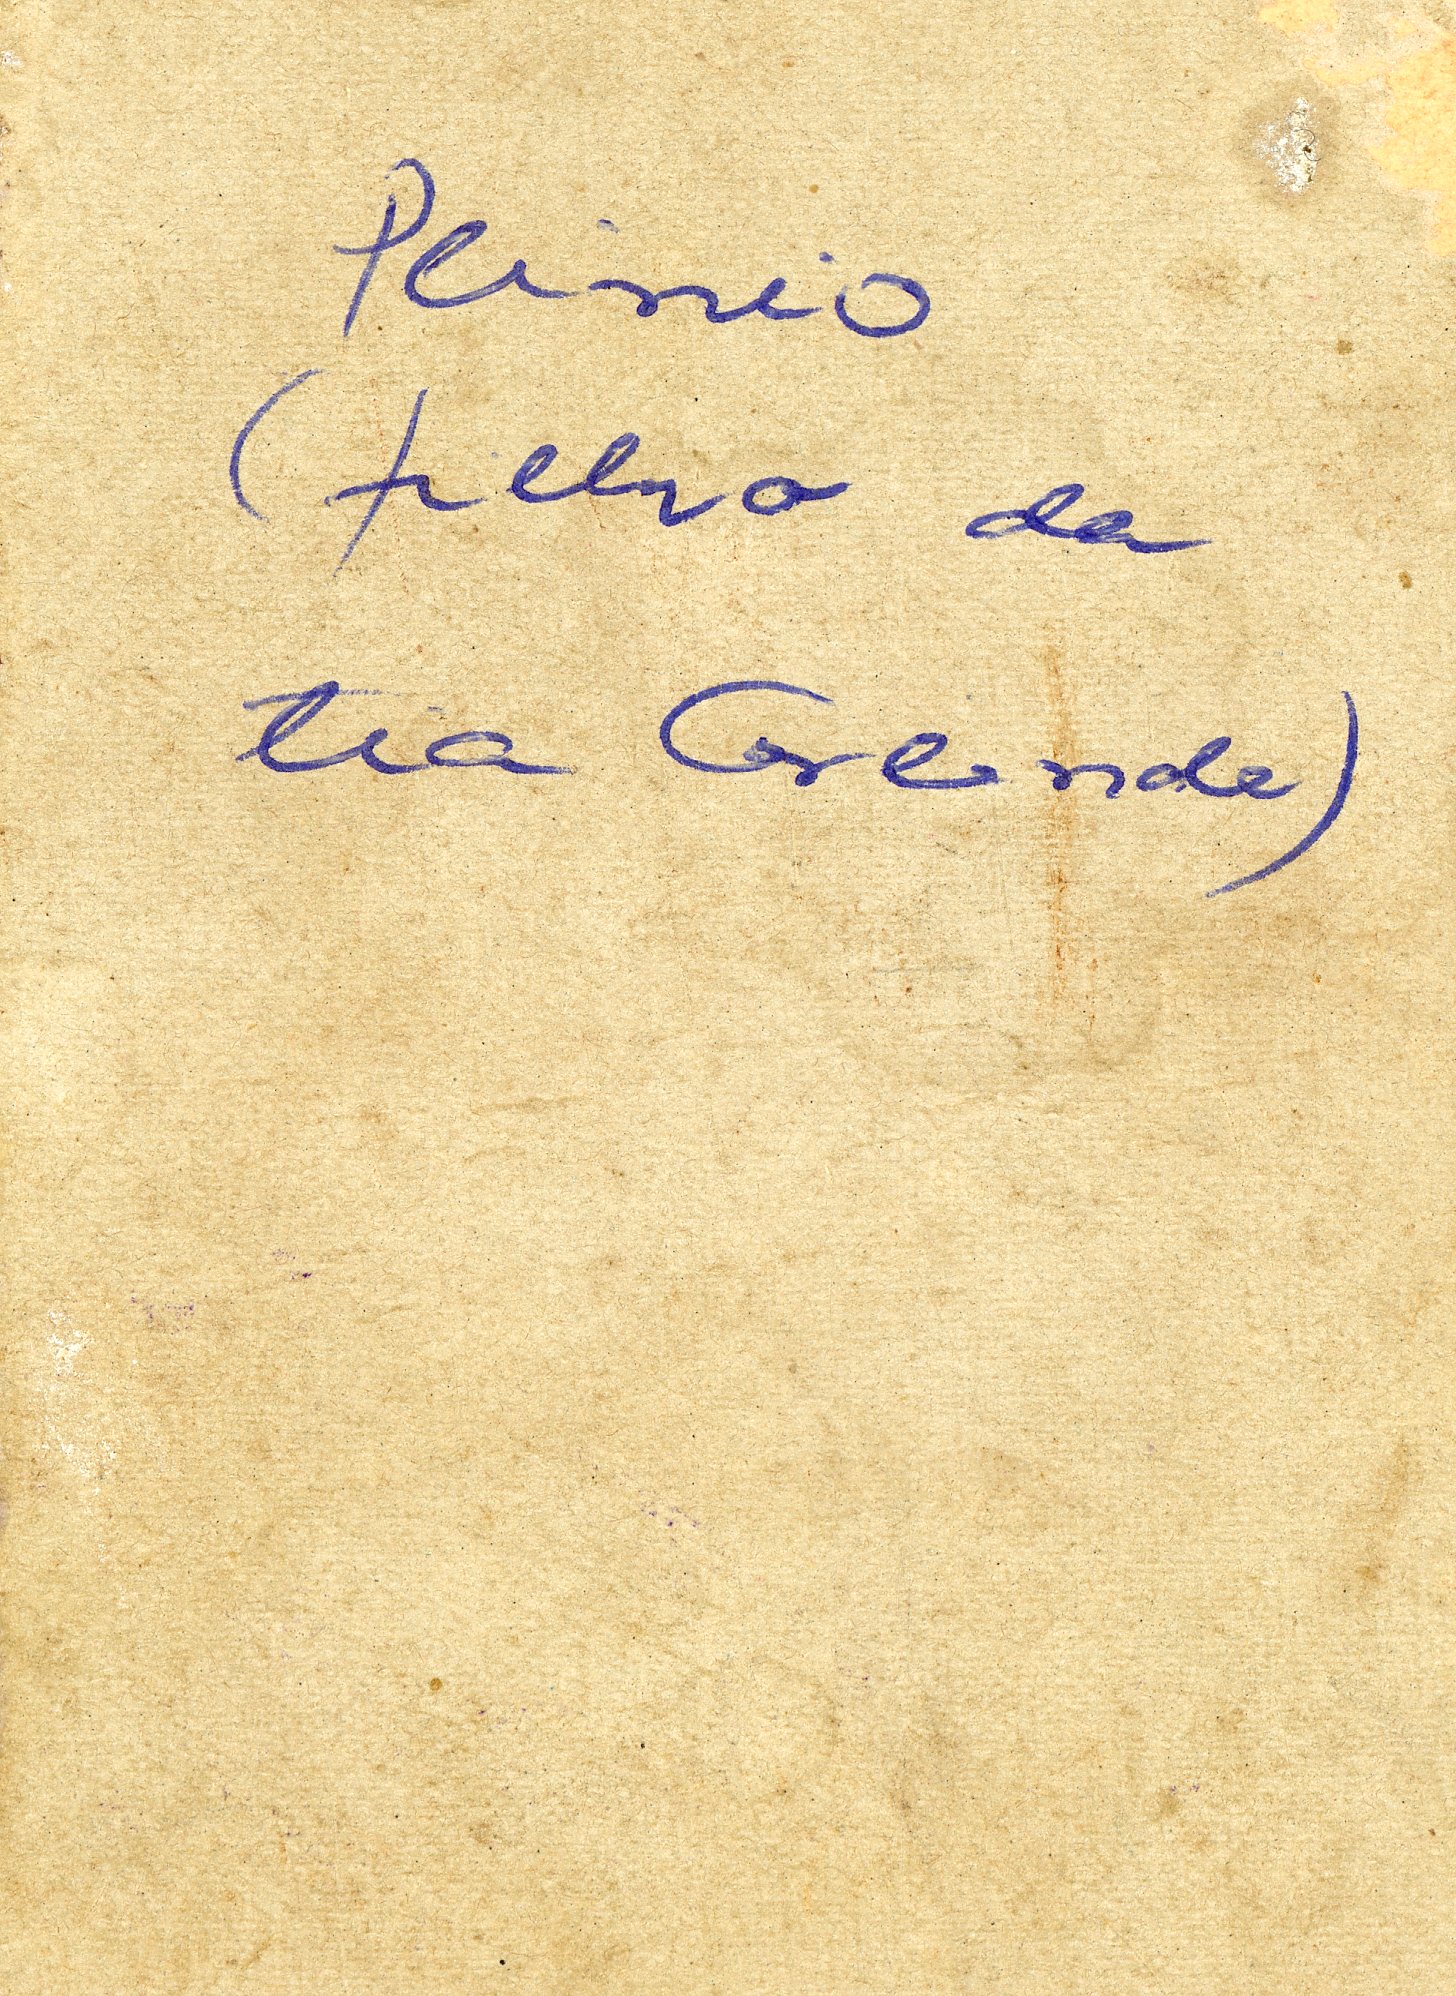 Plinio
(filho da
tia Corlinda)